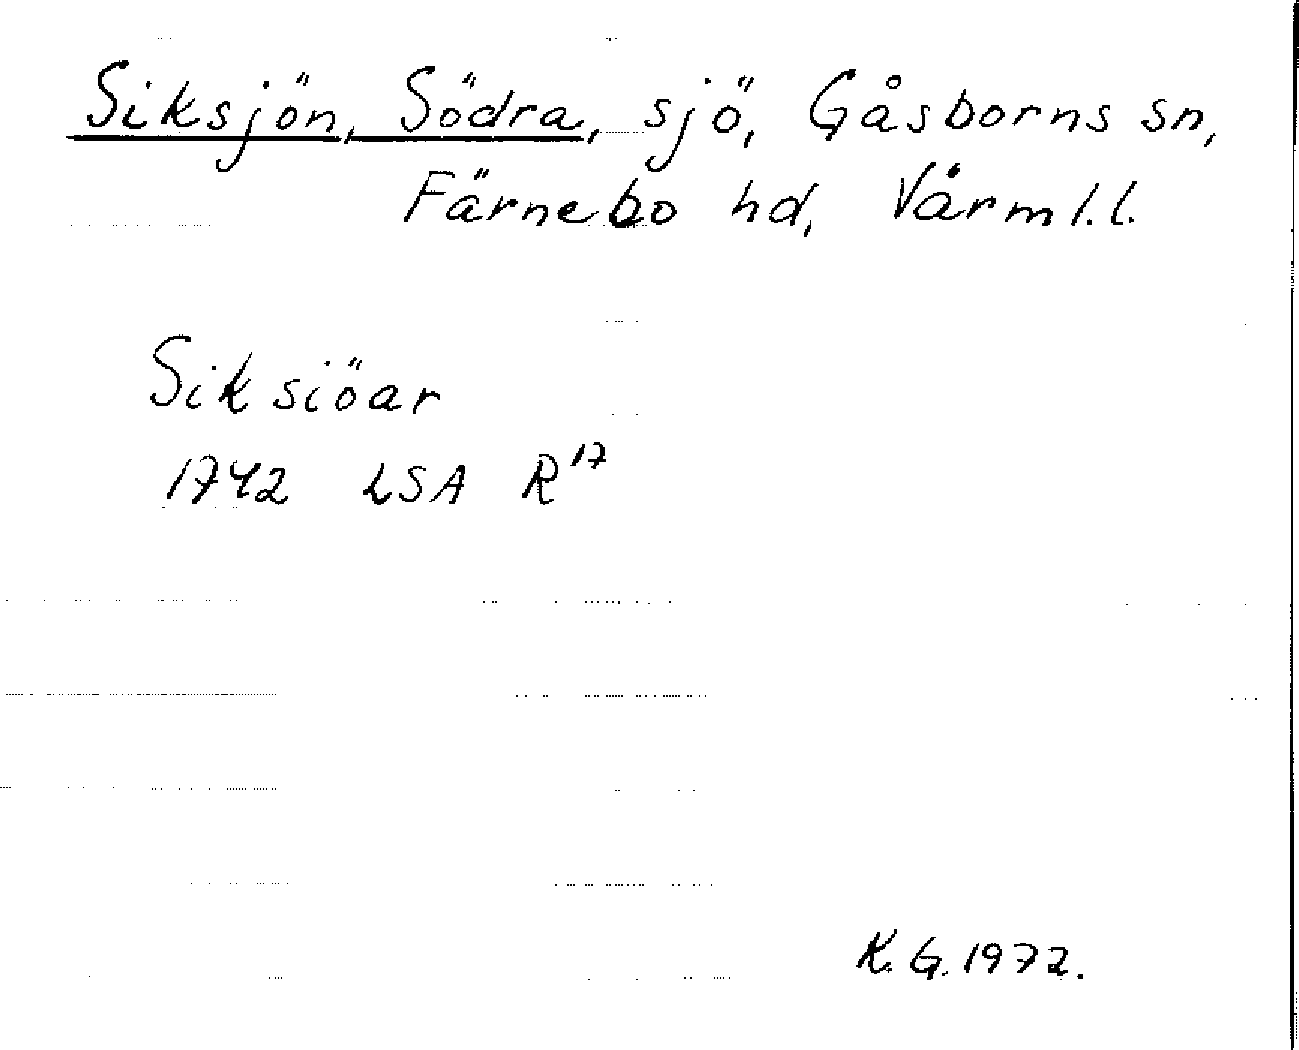 Siksjön, Södra, sjö, Gåsborns sn,
Färnebo hd, Värml. l.
Siksiöar
1742 LSA R17
K. G. 1972.